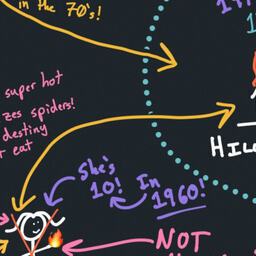 in the 70's!
super hot
zes spiders!
destiny
r eat
She's
10!
In
1960!
HIL
NOT